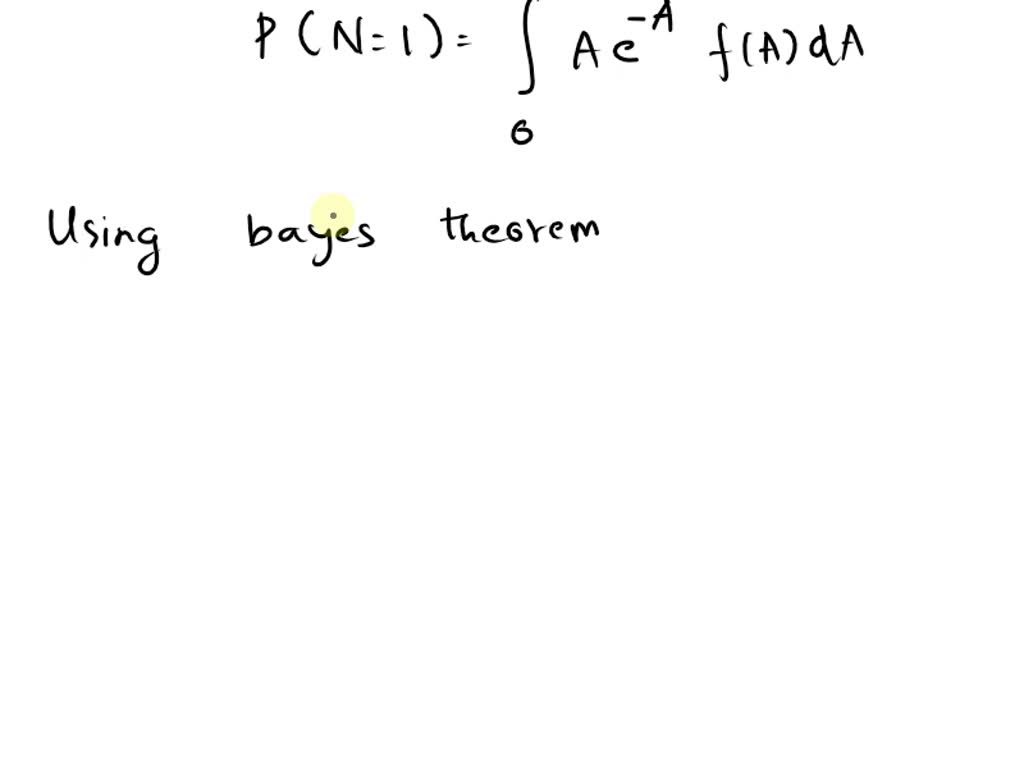 P(N=1)= ∫ A e^-A f(A)dA
0
Using bayes theorem